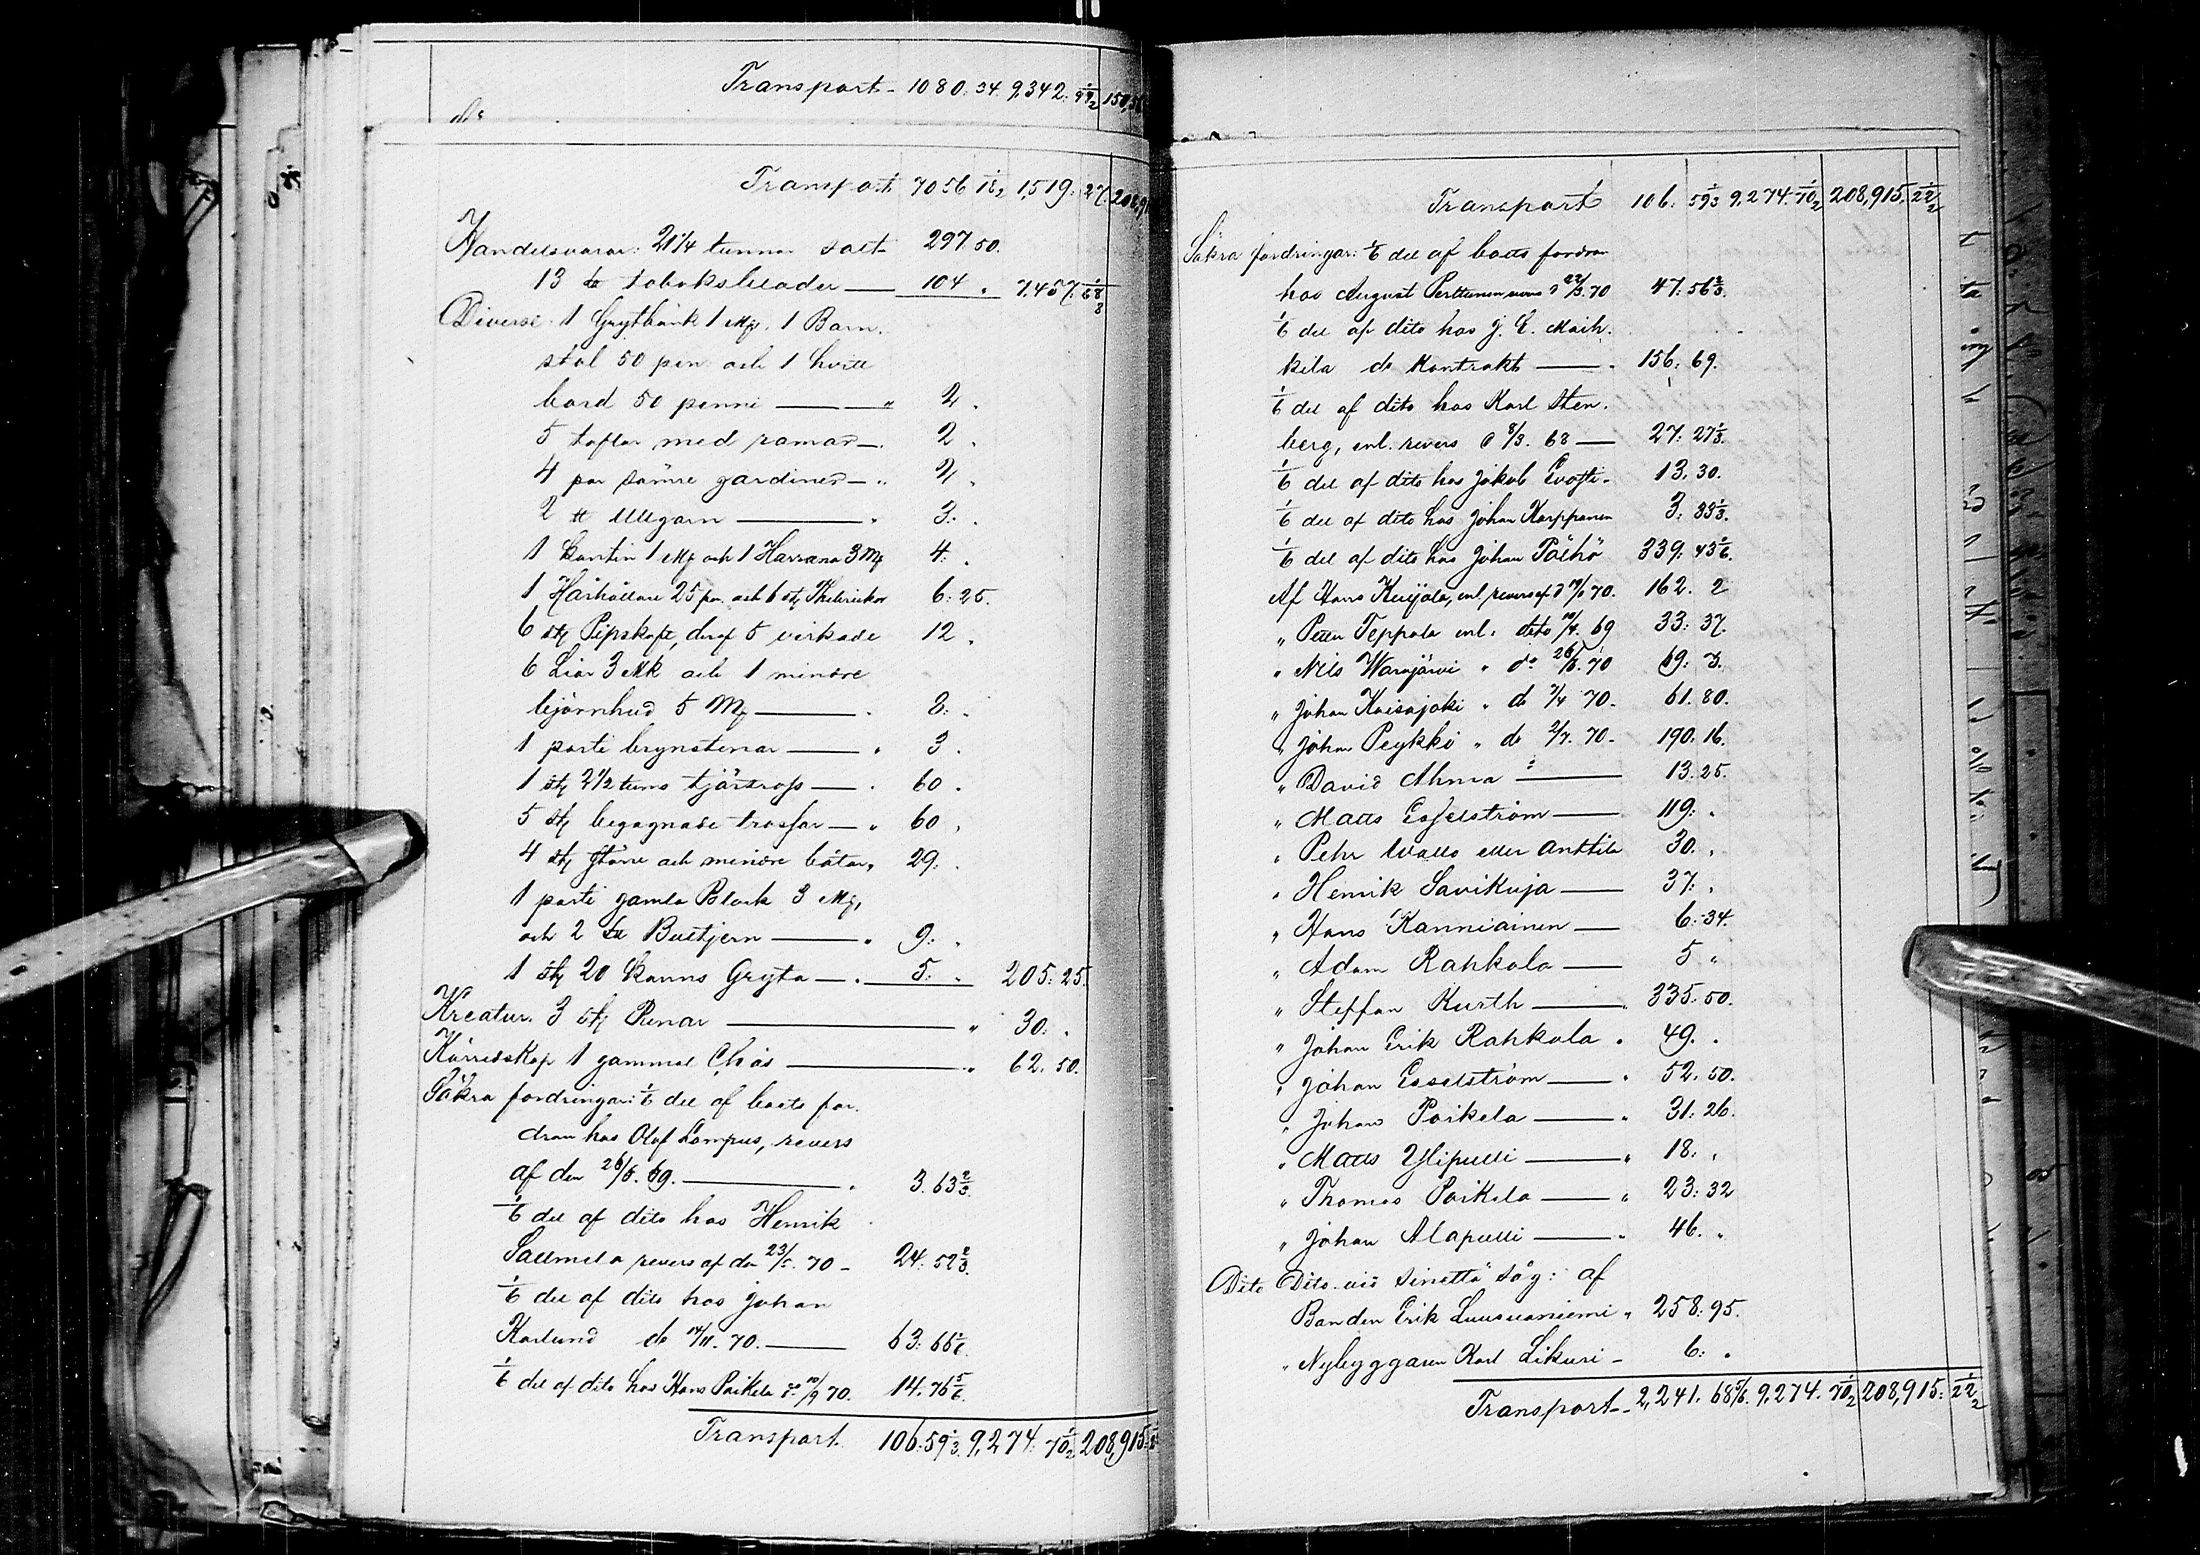 Transport 1080. 34. 9,342. 99½ 150,
Transport 7056 18½ 1,519. 27. 208,91
Handelsvaror: 21¼ tunnor salt 297. 50.
13 ℔ tobaksblader — 104 . 7,457. 68
Diverse. 1 Grytbänk 1 Mg. 1 Barn.
stol 50 pen och 1 hvitt
bord 50 penni — " 2 .
5 taflor med ramar — . 2 .
4 par sämre gardiner — " 2 .
2 ℔ Ullgarn — " 3. .
1 Kantin 1 Mg och 1 Harrana 3 Mg 4. .
1 Hårhållare 25 pn. och 6 stg 6: 25.
6 stg Pipskaft, deraf 5 virkade 12 .
6 Liar 3 Mk och 1 mindre
björnhud 5 Mg — . 8: .
1 parti brynstenar — " 3 .
1 stg 2½ tums tjärtross — . 60 .
5 stg begagnade trossar — " 60 .
4 stg större och mindre båtar, 29. .
1 parti gamla Block 3 Mg,
och 2 ℔ Bultjern — " 9: .
1 stg 20 kanns Gryta — . 5. . 205. 25.
Kreatur. 3 stg Renar — " 30. .
Körredskap 1 gammal Chäs — " 62. 50.
Säkra fordringar: 1/6 del af boets for.
dran hos Olof Lampus, revers
af den 26/5. 69. — . 3. 63⅔.
1/6 del af dito hos Henrik
Sallmela revers af den 23/5. 70 — 24. 52⅔.
1/6 del af dito hos Johan
Karlund do 14/11. 70. — 63. 66
1/6 del af dito hos Hans Paikela do 10/9 70. 14. 76⅚.
Transport. 106. 59⅓ 9,274. 70½ 208,915:
Transport 106. 59⅓ 9,274. 70½ 208,915. 22½
Säkra fordringar: 1/6 del af boets fordran
hos August Perttunen revers d 22/3. 70 47. 56⅔.
1/6 del af dito hos J. E. Maih.
kila do Kontrakt — . 156. 69.
1/6 del af dito hos Karl Sten.
berg, enl. revers d 8/3. 68 — 27. 27⅓.
1/6 del af dito hos Jakob 13. 30.
1/6 del af dito hos Johan Karppanen 3. 33⅓.
1/6 del af dito hos Johan Pöehö 339. 43⅚.
Af Hans Kuijala, enl, revers af d 70. 162. 2
" Petter Teppola enl. dito 10/4. 69 33. 37.
" Nils Warajärvi " do 26/5. 70 69. 3.
" Johan Kaisajoki " do 7/4 70. 61. 80.
" Johan Peykkö " do 2/7. 70. 190. 16.
" David Ahma — 13. 25.
" Matts Esselström — 119: .
" Pehr Walls eller Anttila 30. .
" Henrik Savikuja — 37: .
" Hans Kanniainen — 6. 34.
" Adam Rahkola — 5 "
" Steffan Kurth — 335. 50.
" Johan Erik Rahkola . 49. .
" Johan Esselström — . 52. 50.
" Johan Poikela — " 31. 26.
" Matts Ylipulli — " 18: .
" Thomas Poikela — " 23. 32
" Johan Alapulli — . 46. .
Dito Dito vid Sinettä såg: af
Bonden Erik Luusuaniemi " 258. 95.
" Nybyggaren Karl Likuri — 6: .
Transport — 2,241. 68⅚. 9,274. 70½ 208,915: 22½